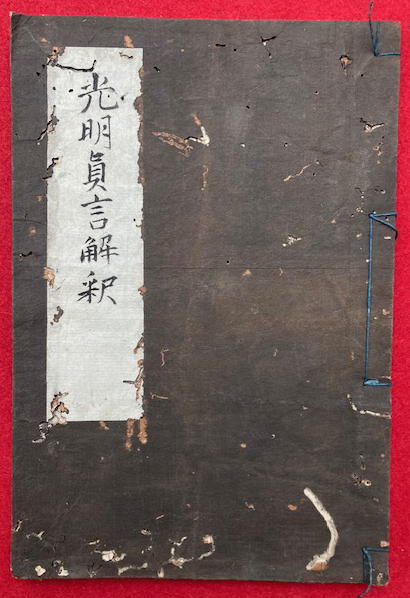 光明眞言解釈